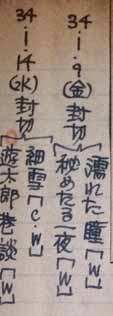 34.1.9(金)封切
濡れた瞳[W]
秘めたる一夜[W]
34.1.14(水)封切
細雪[C.W]
遊太郎巷談[W]